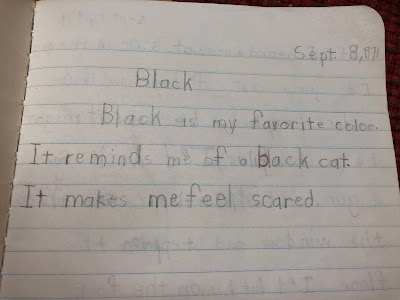 Sept. 8, 1971
Black
Black is my favorite color.
It reminds me of a black cat.
It makes me feel scared.